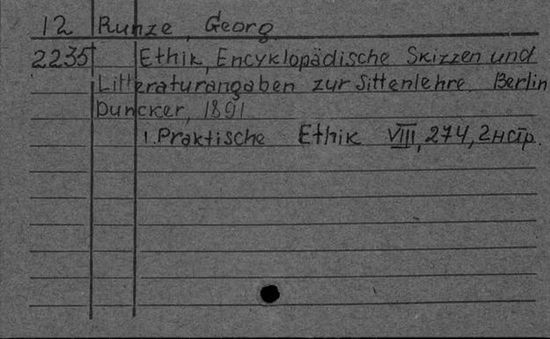 12 Runze, Georg
2235 Ethik, Encyklopädische Skizzen und
Litteraturangaben zur Sittenlehre. Berlin
Duncker, 1891
1. Praktische Ethik VIII, 274, 2 н стр.